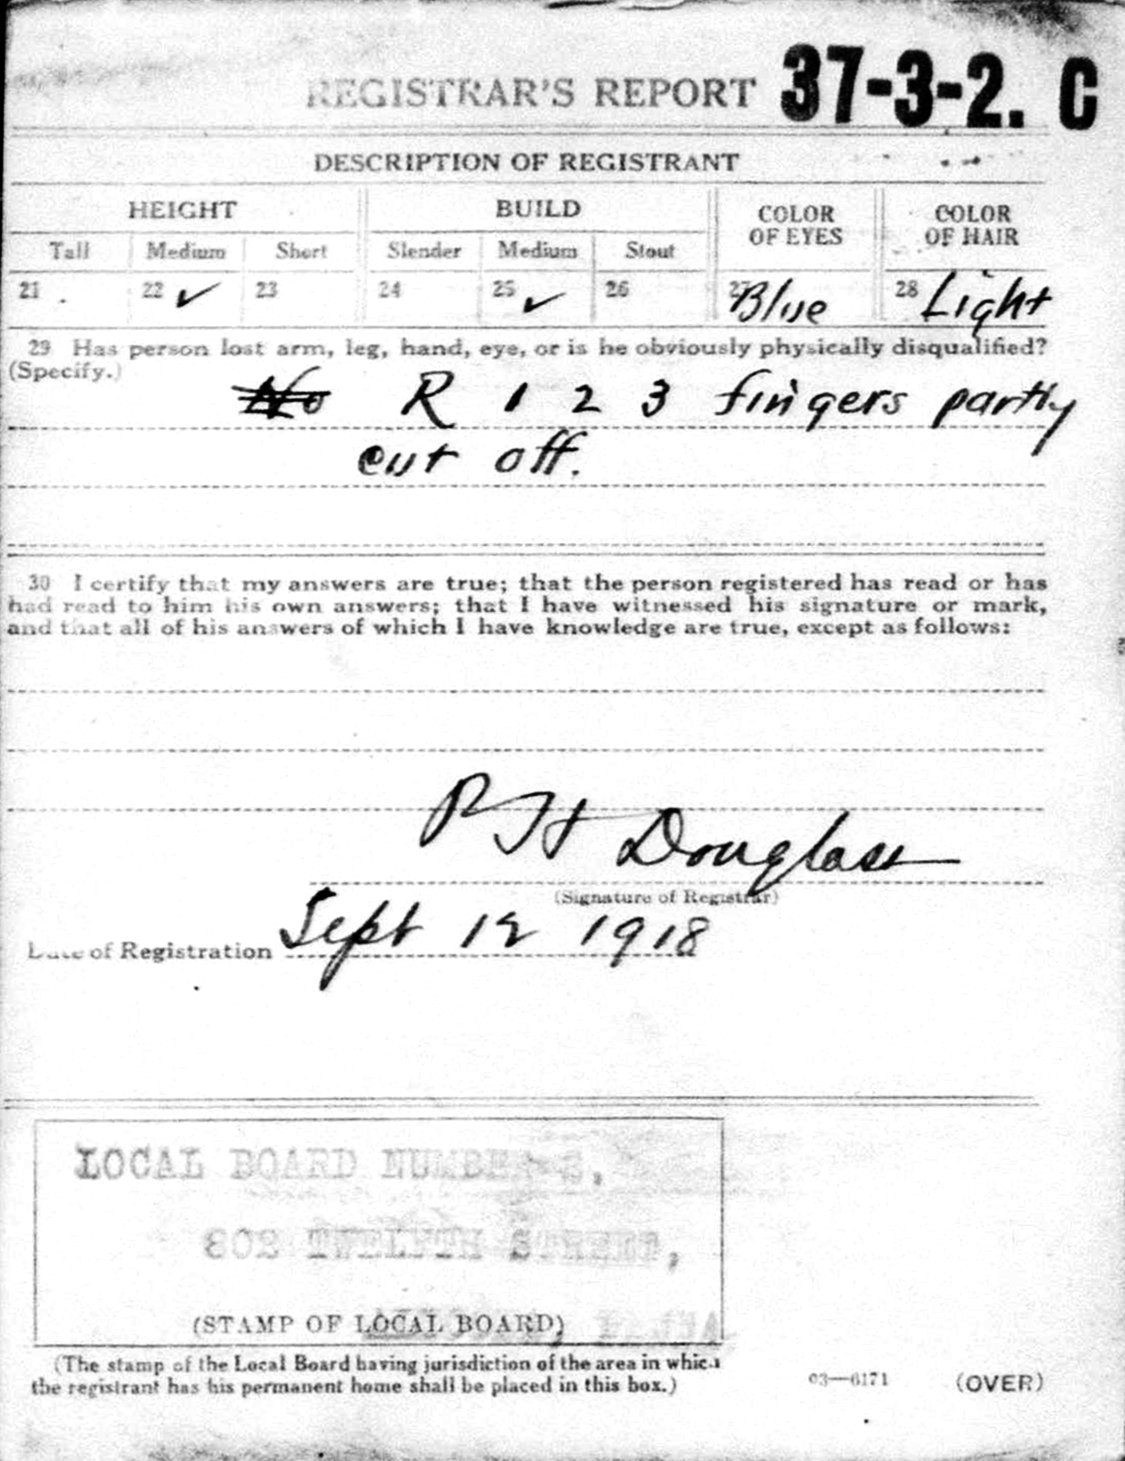 REGISTRAR'S REPORT 37-3-2. C
DESCRIPTION OF REGISTRANT
HEIGHT BUILD COLOR OF EYES COLOR OF HAIR
Tall Medium Short Slender Medium Stout
21 22 ✓ 23 24 25 ✓ 26 27 Blue 28 Light
29 Has person lost arm, leg, hand, eye, or is he obviously physically disqualified?
(Specify.)
No R 1 2 3 fingers partly
cut off.
30 I certify that my answers are true; that the person registered has read or has
had read to him his own answers; that I have witnessed his signature or mark,
and that all of his answers of which I have knowledge are true, except as follows:
Douglass
(Signature of Registrar)
Date of Registration Sept 12 1918
LOCAL BOARD NUMBER 2,
TWELFTH STREET,
(STAMP OF LOCAL BOARD)
(The stamp of the Local Board having jurisdiction of the area in which
the registrant has his permanent home shall be placed in this box.)
03—6171 (OVER)